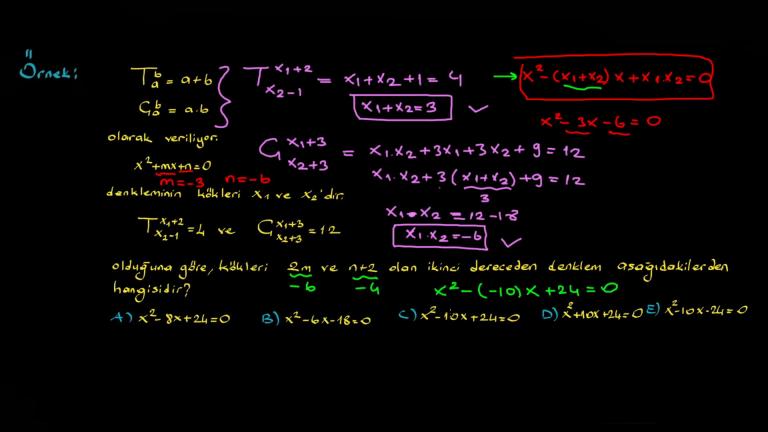 Örnek:
T_a^b = a+b
G_a^b = a.b
olarak veriliyor.
x²+mx+n=0
m=-3 n=-6
denkleminin kökleri x₁ ve x₂'dir.
T_{x₂-1}^{x₁+2} = 4 ve G_{x₂+3}^{x₁+3} = 12
T_{x₂-1}^{x₁+2} = x₁+x₂+1 = 4
x₁+x₂=3 ✓
→ x²-(x₁+x₂)x+x₁.x₂=0
x²-3x-6=0
G_{x₂+3}^{x₁+3} = x₁.x₂+3x₁+3x₂+9=12
x₁.x₂+3(x₁+x₂)+9=12
3
x₁.x₂=12-18
x₁.x₂=-6 ✓
olduğuna göre, kökleri 2m ve n+2 olan ikinci dereceden denklem aşağıdakilerden
-6 -4
hangisidir?
x²-(-10)x+24=0
A) x²-8x+24=0 B) x²-6x-18=0 C) x²-10x+24=0 D) x²+10x+24=0 E) x²-10x-24=0